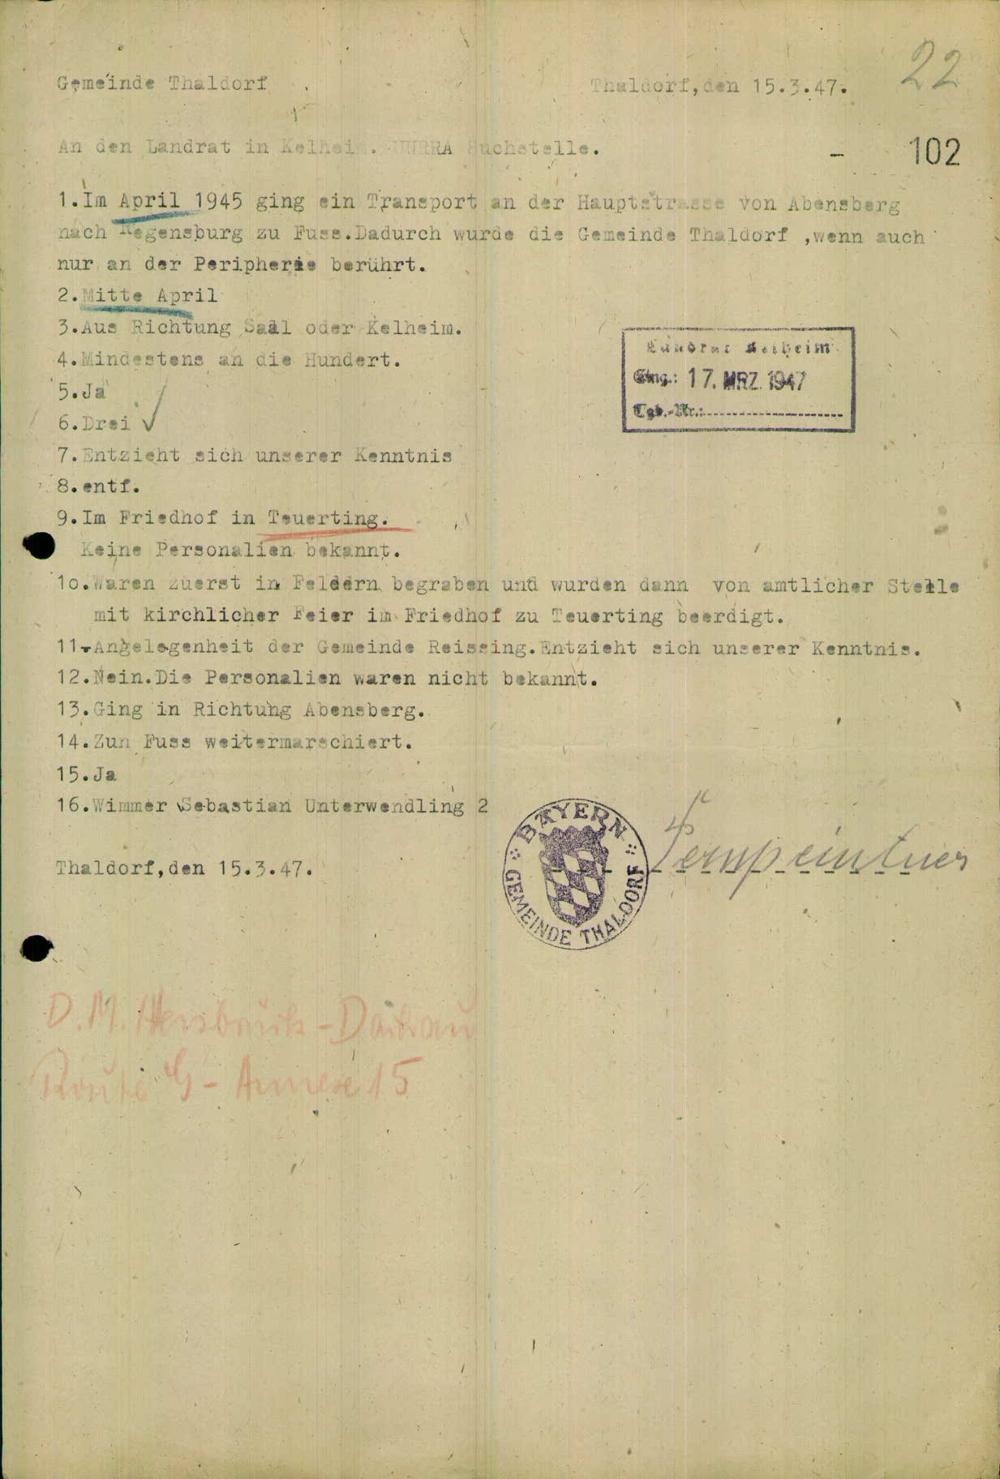 22
Gemeinde Thaldorf
Thaldorf,den 15.3.47.
An den Landrat in Kelheim. UNRRA Suchstelle.
- 102
1.Im April 1945 ging ein Transport an der Hauptstrasse von Abensberg
nach Regensburg zu Fuss.Dadurch wurde die Gemeinde Thaldorf ,wenn auch
nur an der Peripherie berührt.
2.Mitte April
3.Aus Richtung Saal oder Kelheim.
4.Mindestens an die Hundert.
5.Ja
6.Drei
7.Entzieht sich unserer Kenntnis
8.entf.
9.Im Friedhof in Teuerting.
Keine Personalien bekannt.
1o.Waren zuerst in Feldern begraben und wurden dann von amtlicher Stelle
mit kirchlicher Feier im Friedhof zu Teuerting beerdigt.
11.Angelegenheit der Gemeinde Reissing.Entzieht sich unserer Kenntnis.
12.Nein.Die Personalien waren nicht bekannt.
13.Ging in Richtung Abensberg.
14.Zun Fuss weitermarschiert.
15.Ja
16.Wimmer Sebastian Unterwendling 2
Landrat Kelheim
Eing.: 17. MRZ. 1947
Tgb.-Nr.:
Thaldorf,den 15.3.47.
BAYERN
GEMEINDE THALDORF
D.M. Hersbruck - Dachau
Route G - Annexe 15